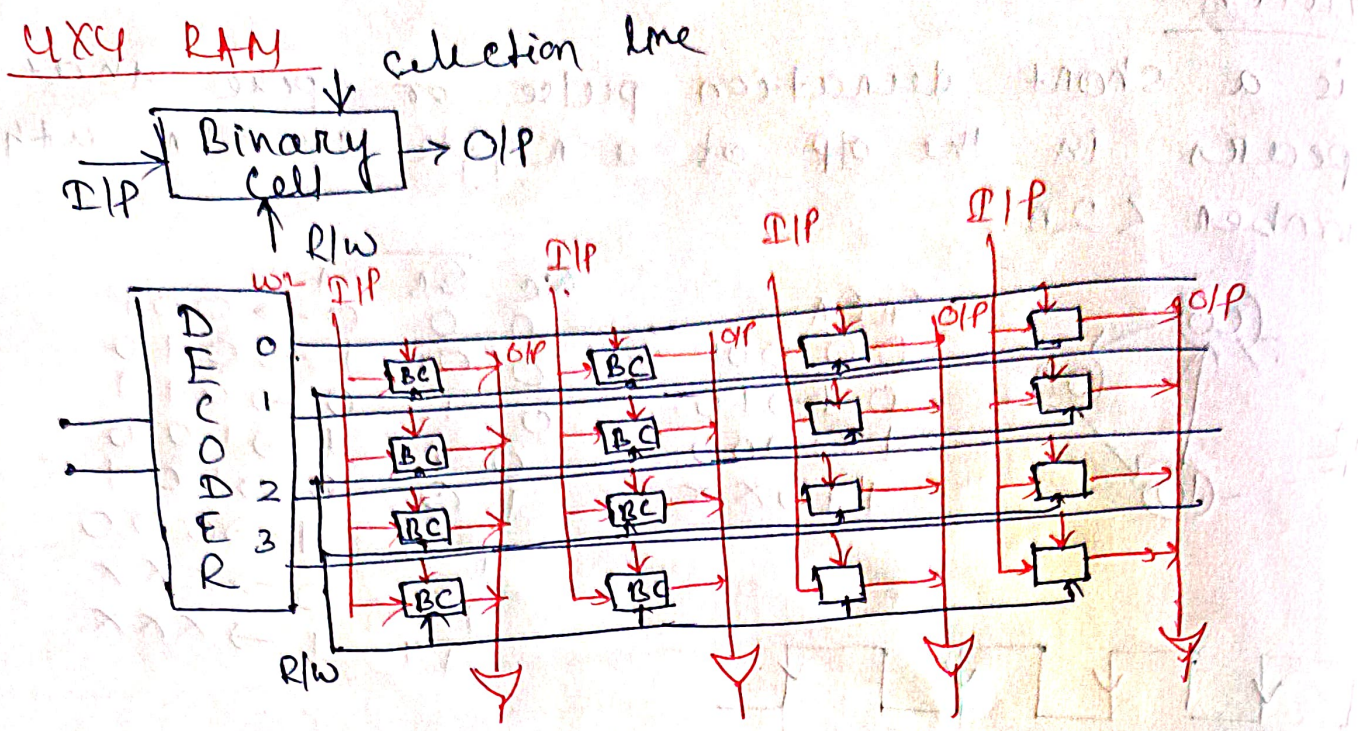 4X4 RAM
selection line
Binary
Cell
I/P
O/P
R/W
I/P
I/P
I/P
I/P
DECODER
0
1
2
3
O/P
O/P
O/P
O/P
BC
BC
BC
BC
BC
BC
BC
BC
R/W